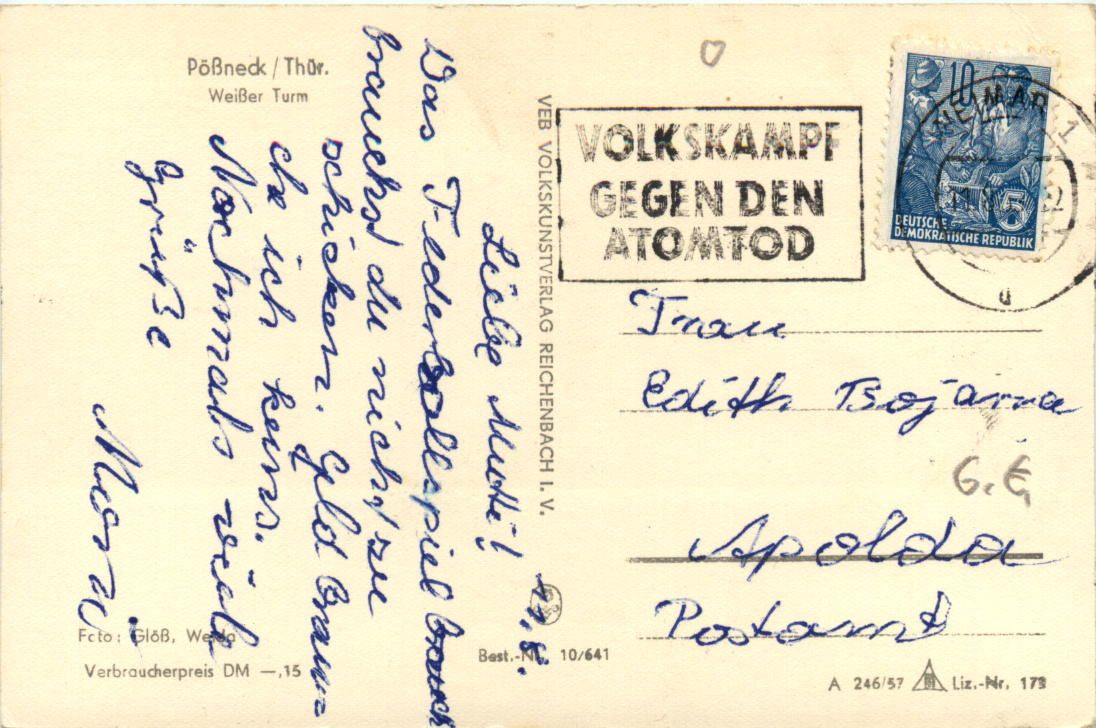 Pößneck / Thür.
Weißer Turm
Liebe Mutti! 11.8.
Das Federballspiel brauch
brauchst du nicht zu
schicken. Geld brau=
che ich keins.
Nochmals viele
Grüße
Moni
Foto: Glöß, Weida
Verbraucherpreis DM —,15
VEB VOLKSKUNSTVERLAG REICHENBACH I. V.
Best.-Nr. 10/641
VOLKSKAMPF
GEGEN DEN
ATOMTOD
10
5
DEUTSCHE
DEMOKRATISCHE REPUBLIK
WEIMAR 1
d
Frau
Edith
G. E
Apolda
Postamt
A 246/57 Liz.-Nr. 173